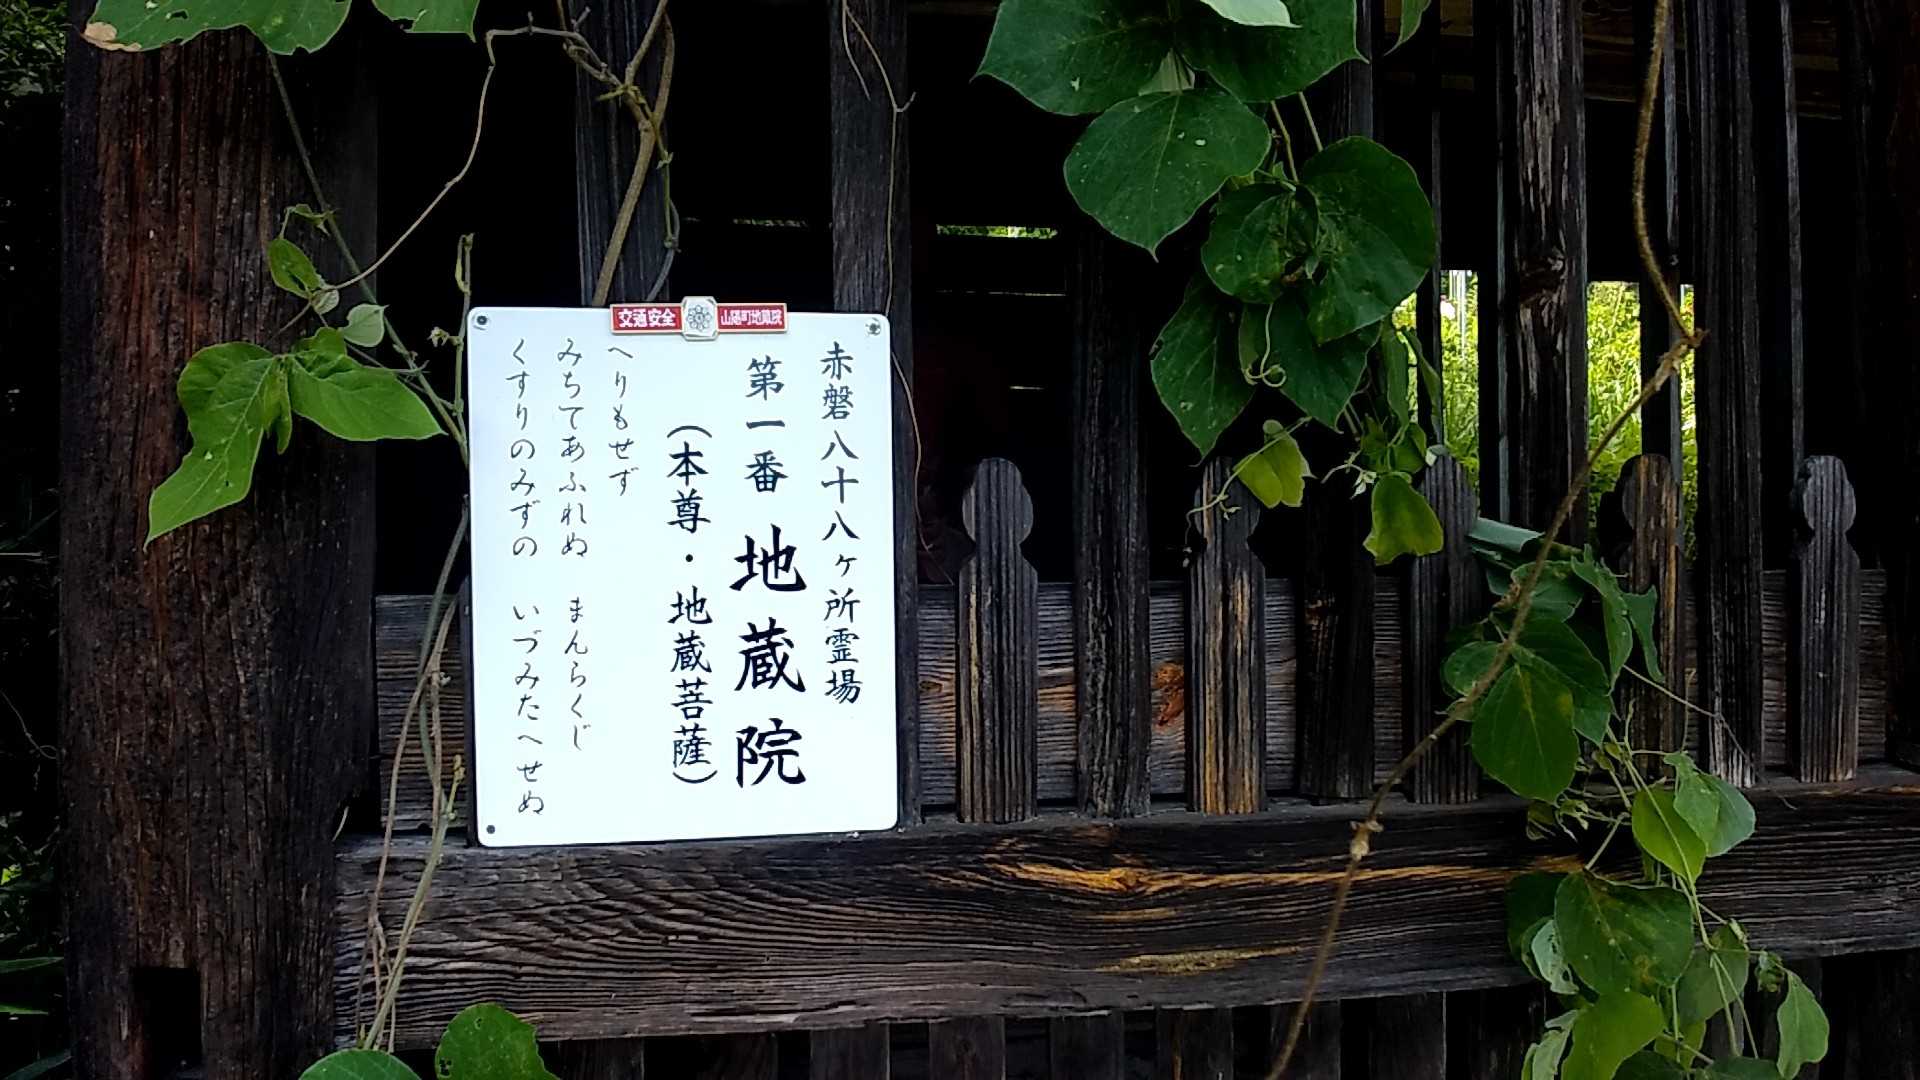 交通安全 山陽町地蔵院
赤磐八十八ヶ所霊場
第一番 地蔵院
(本尊・地蔵菩薩)
へりもせず
みちてあふれぬ まんらくじ
くすりのみずの いづみたへせぬ